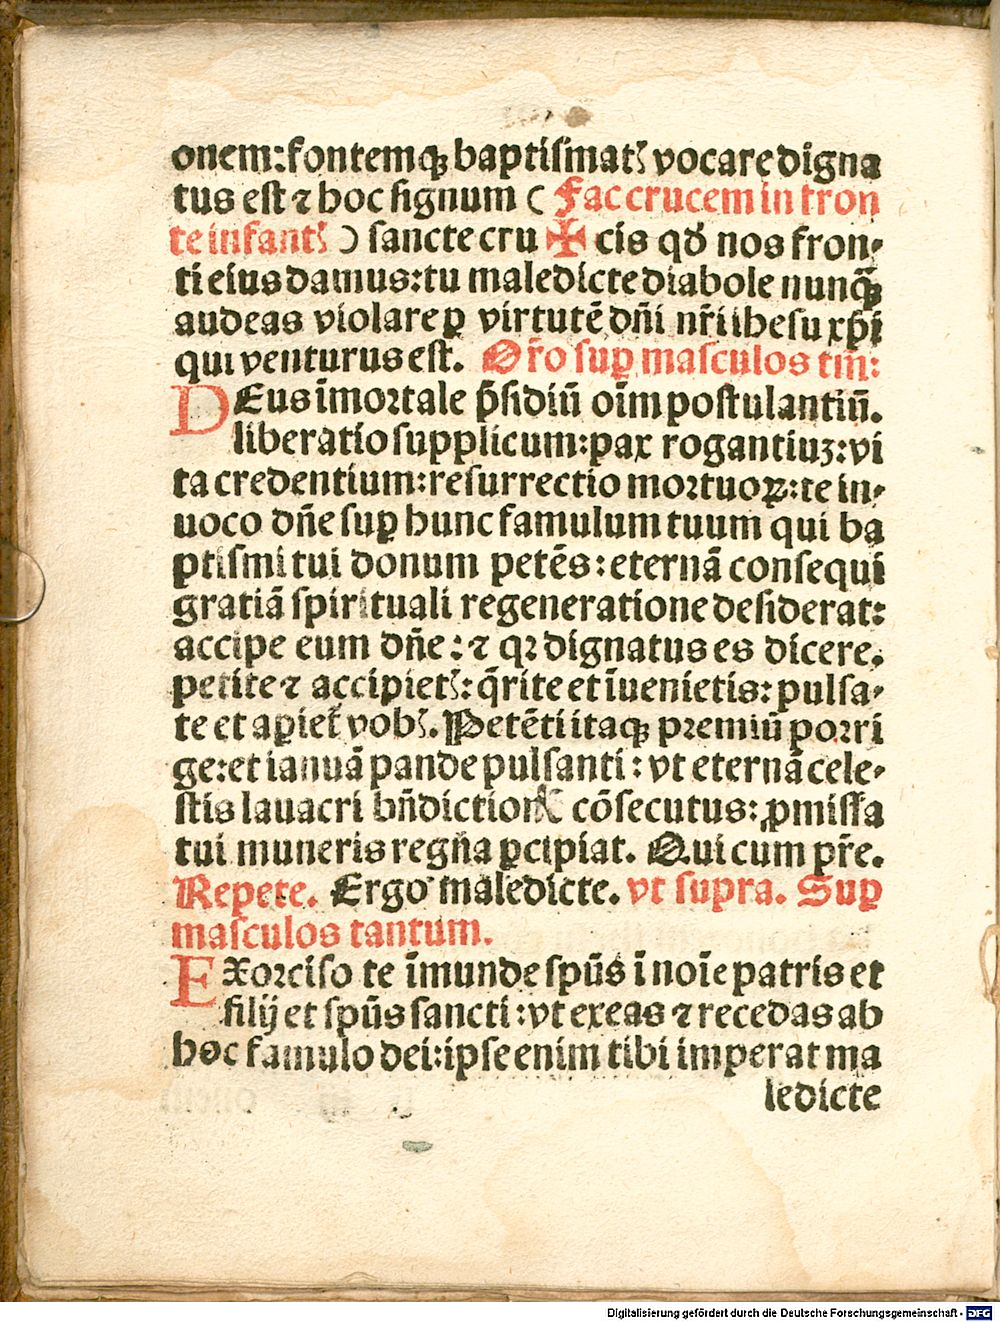 onem: fontemqꝫ baptismatꝭ vocare digna
tus est ⁊ hoc signum ( Fac crucem in fron
te infantꝭ ) sancte cru ✠ cis qđ nos fron⸗
ti eius damus: tu maledicte diabole nunq̄ꝫ
audeas violare ꝑ virtutē dn̄i nr̄i ihesu xp̄i
qui venturus est. Or̄o suꝑ masculos tm̄:
DEus īmortale p̄sidiū oīm postulantiū.
liberatio supplicum: pax rogantiuꝫ: vi
ta credentium: resurrectio mortuoꝝ: te in⸗
uoco dn̄e suꝑ hunc famulum tuum qui ba
ptismi tui donum petēs: eternā consequi
gratiā spirituali regeneratione desiderat:
accipe eum dn̄e: ⁊ qꝛ dignatus es dicere.
petite ⁊ accipietꝭ: q̄rite et īuenietis: pulsa⸗
te et aꝑiet᷑ vobꝭ. Petēti itaqꝫ premiū porri
ge: et ianuā pande pulsanti: vt eternā cele⸗
stis lauacri bn̄dictionē cōsecutus: ꝓmissa
tui muneris regn̄a ꝑcipiat. Qui cum pr̄e.
Repete. Ergo maledicte. vt supra. Suꝑ
masculos tantum.
EXorciso te īmunde spūs ī noīe patris et
filij et spūs sancti: vt exeas ⁊ recedas ab
hoc famulo dei: ipse enim tibi imperat ma
ledicte
Digitalisierung gefördert durch die Deutsche Forschungsgemeinschaft - DFG